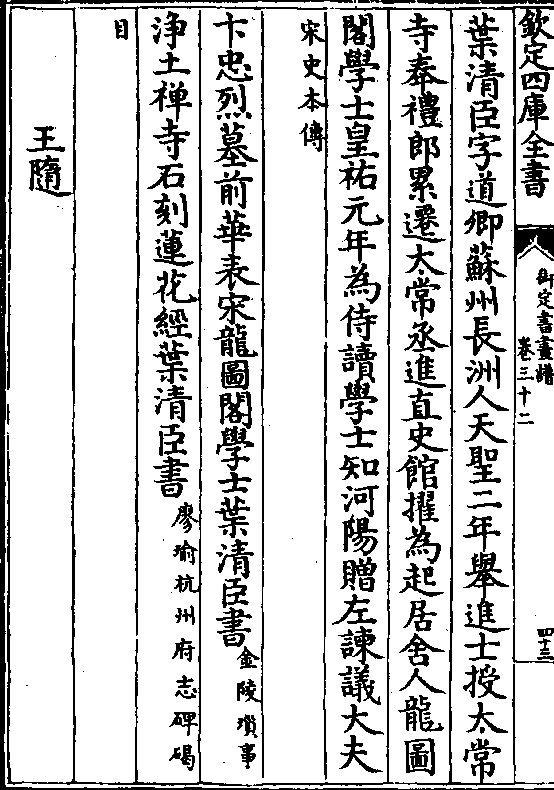 欽定四庫全書
御定書畫譜
卷三十二
四十三
葉清臣字道卿蘇州長洲人天聖二年舉進士授太常
寺奉禮郎累遷太常丞進直史館擢為起居舍人龍圖
閣學士皇祐元年為侍讀學士知河陽贈左諫議大夫
宋史本傳
卞忠烈墓前華表宋龍圖閣學士葉清臣書金陵瑣事
淨土禅寺石刻蓮花經葉清臣書廖瑜杭州府志碑碣
目
王隨